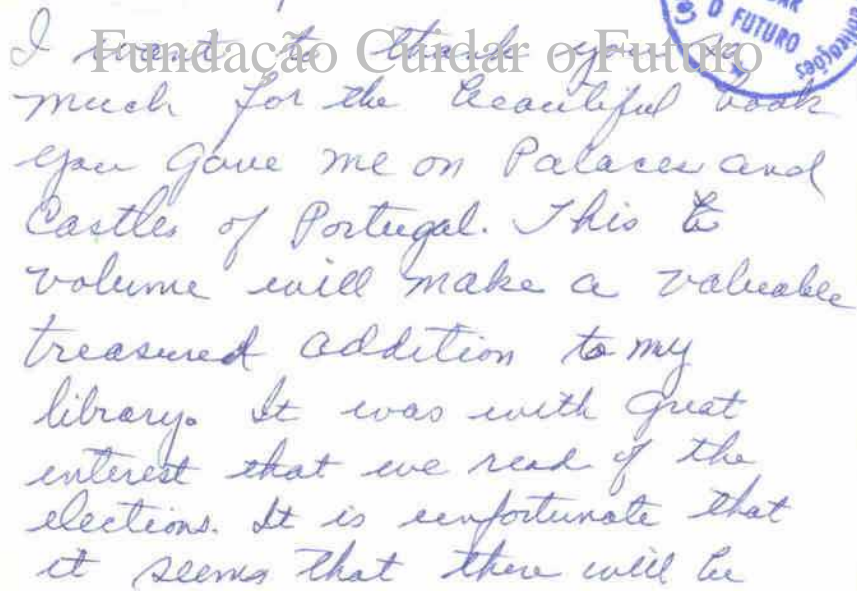 I want to thank you so
Fundação Cuidar o Futuro
O FUTURO
much for the beautiful book
you gave me on Palaces and
Castles of Portugal. This
volume will make a valuable
treasured addition to my
library. It was with great
interest that we read of the
elections. It is unfortunate that
it seems that there will be